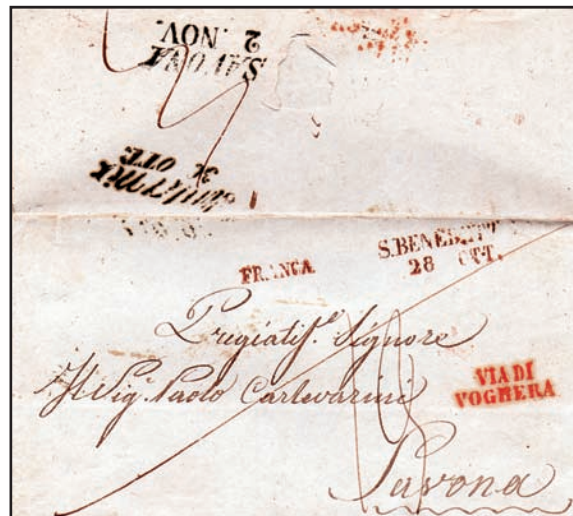 SAVONA
2 NOV.
OTT.
FRANCA
S. BENEDETTO
28 OTT.
Pregiatis.e Signore
Il Sig.r Paolo Carlevarini
VIA DI
VOGHERA
Savona